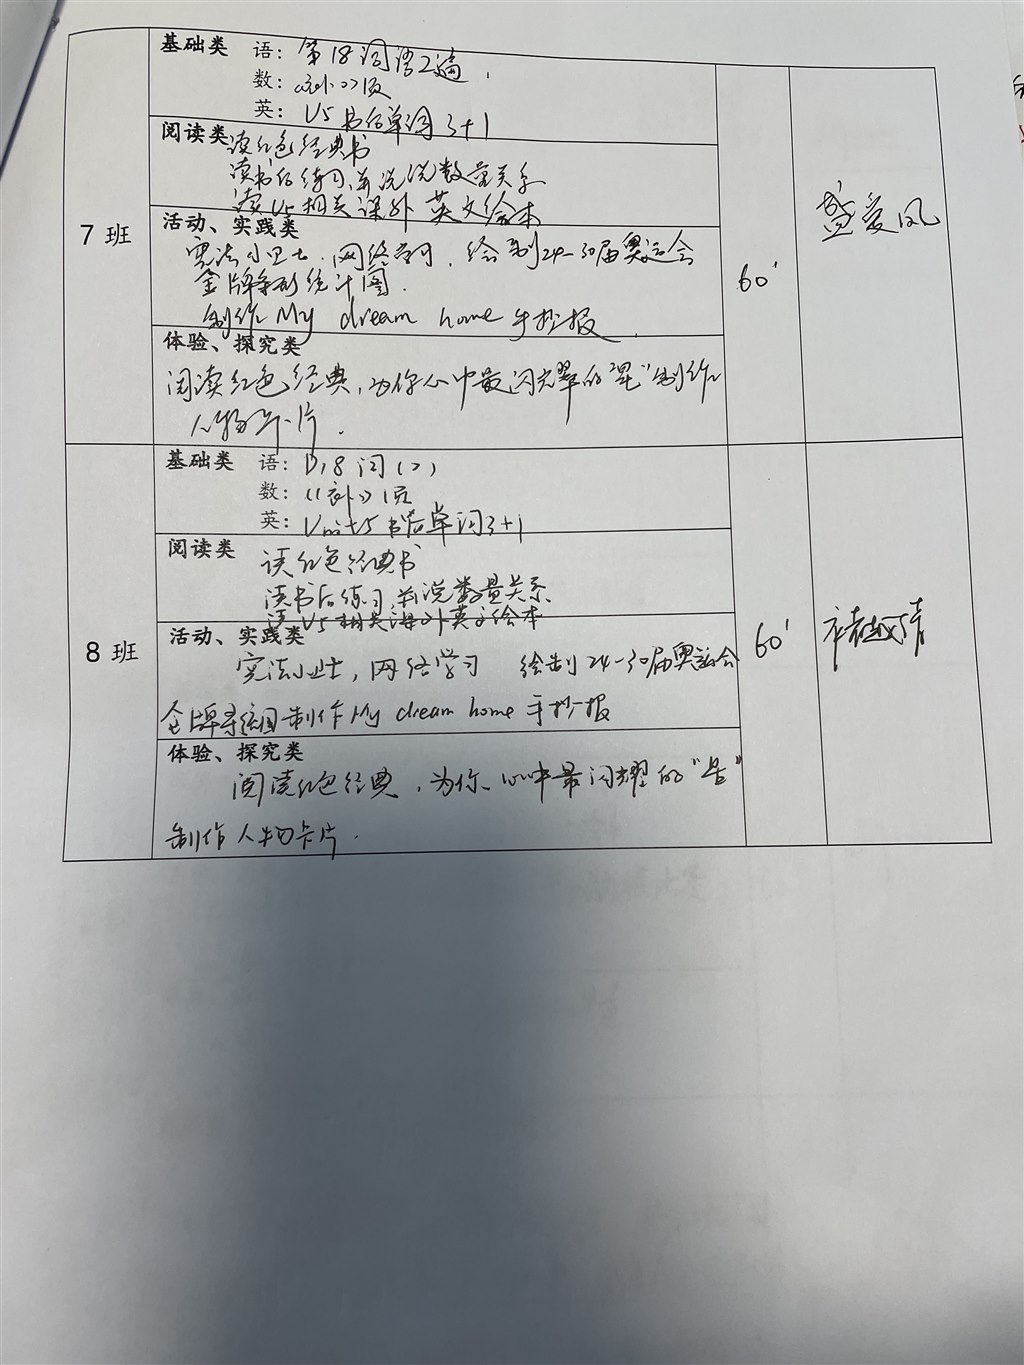 7 班
基础类 语: 第 18 词语 2 遍
数: 《补》1页
英: U5 书后单词 3+1
阅读类 读红色经典书
读书后练习,并说说数量关系
读 U5 相关课外英文绘本
活动、实践类
宪法小卫士. 网络学习. 绘制24-30届奥运会
金牌条形统计图.
制作 My dream home 手抄报
体验、探究类
阅读红色经典,为你心中最闪耀的"星"制作
人物卡片.
60'
盛爱凤
8 班
基础类 语: 18 词(2)
数: 《补》1页
英: Unit5 书后单词3+1
阅读类 读红色经典书
读书后练习,并说数量关系
读 U5 相关课外英文绘本
活动、实践类
宪法小卫士, 网络学习 绘制 24-30届奥运会
金牌条统图 制作 My dream home 手抄报
体验、探究类
阅读红色经典,为你心中最闪耀的"星"
制作人物卡片.
60'